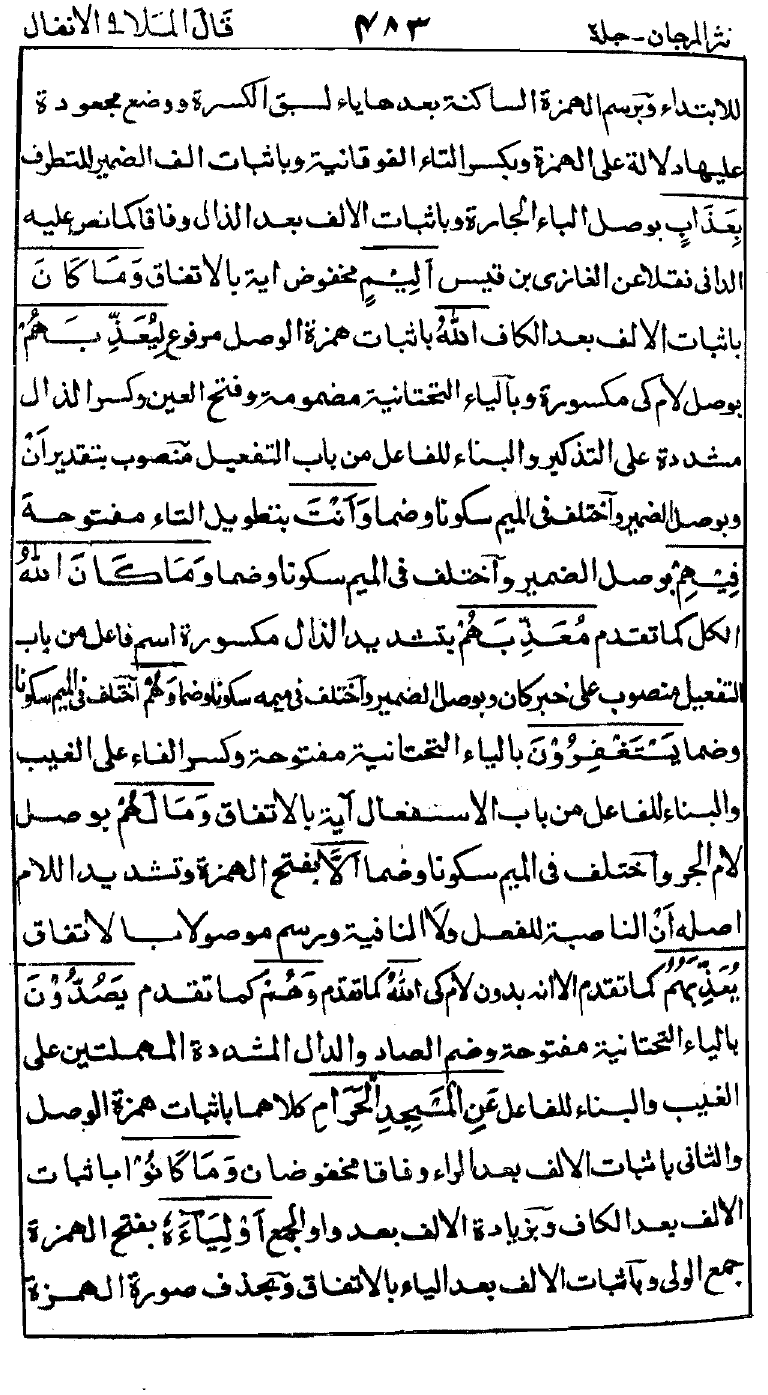 نثر المرجان - جلد ٢ ٤٨٣ قَالَ المَلَا ٩ الأنفال
للابتداء وَبرسم الهمزة الساكنة بعدها ياء لسبق الكسرة ووضع مجعودة
عليها دلالة على الهمزة وبكسر التاء الفوقانية وباثبات الف الضمير للتطرف
بِعَذَابٍ بوصل الباء الجارة وباثبات الالف بعد الذال وفاقا كما نص عليه
الدانى نقلا عن الغازى بن قيس اَلِيْمٍ مخفوض اية بالاتفاق وَمَا كَانَ
باثبات الالف بعد الكاف اللّٰهُ باثبات همزة الوصل مرفوع لِيُعَذِّبَهُمْ
بوصل لام كى مكسورة وبالياء التحتانية مضمومة وفتح العين وكسر الذال
مشددة على التذكير والبناء للفاعل من باب التفعيل منصوب بتقدير اَنْ
وبوصل الضمير وَاختلف فى الميم سكونا وضما وَاَنْتَ بتطويل التاء مفتوحة
فِيْهِمْ بوصل الضمير وَاختلف فى الميم سكونا وضما وَمَا كَانَ اللّٰهُ
الكل كما تقدم مُعَذِّبَهُمْ بتشديد الذال مكسورة اسم فاعل من باب
التفعيل منصوب على خبر كان وبوصل الضمير وَاختلف فى ميمه سكونا وضما وَهُمْ اختلف فى الميم سكونا
وضما يَسْتَغْفِرُوْنَ بالياء التحتانية مفتوحة وكسر الفاء على الغيب
والبناء للفاعل من باب الاستفعال آية بالاتفاق وَمَا لَهُمْ بوصل
لام الجر وَاختلف فى الميم سكونا وضما اَلَّا بفتح الهمزة وتشديد اللام
اصله اَنْ الناصبة للفصل ولَا النافية وبرسم موصولا بالاتفاق
يُعَذِّبَهُمُ كما تقدم الا انه بدون لام كى اللّٰهُ كما تقدم وَهُمْ كما تقدم يَصُدُّوْنَ
بالياء التحتانية مفتوحة وضم الصاد والدال المشددة المهملتين على
الغيب والبناء للفاعل عَنِ الْمَسْجِدِ الْحَرَامِ كلاهما باثبات همزة الوصل
والثانى باثبات الالف بعد الراء وفاقا مخفوضان وَمَا كَانُوْا باثبات
الالف بعد الكاف وَبزيادة الالف بعد واو الجمع اَوْلِيَآءَهٗ بفتح الهمزة
جمع الولى وبَاثبات الالف بعد الياء بالاتفاق وَبحذف صورة الهمزة